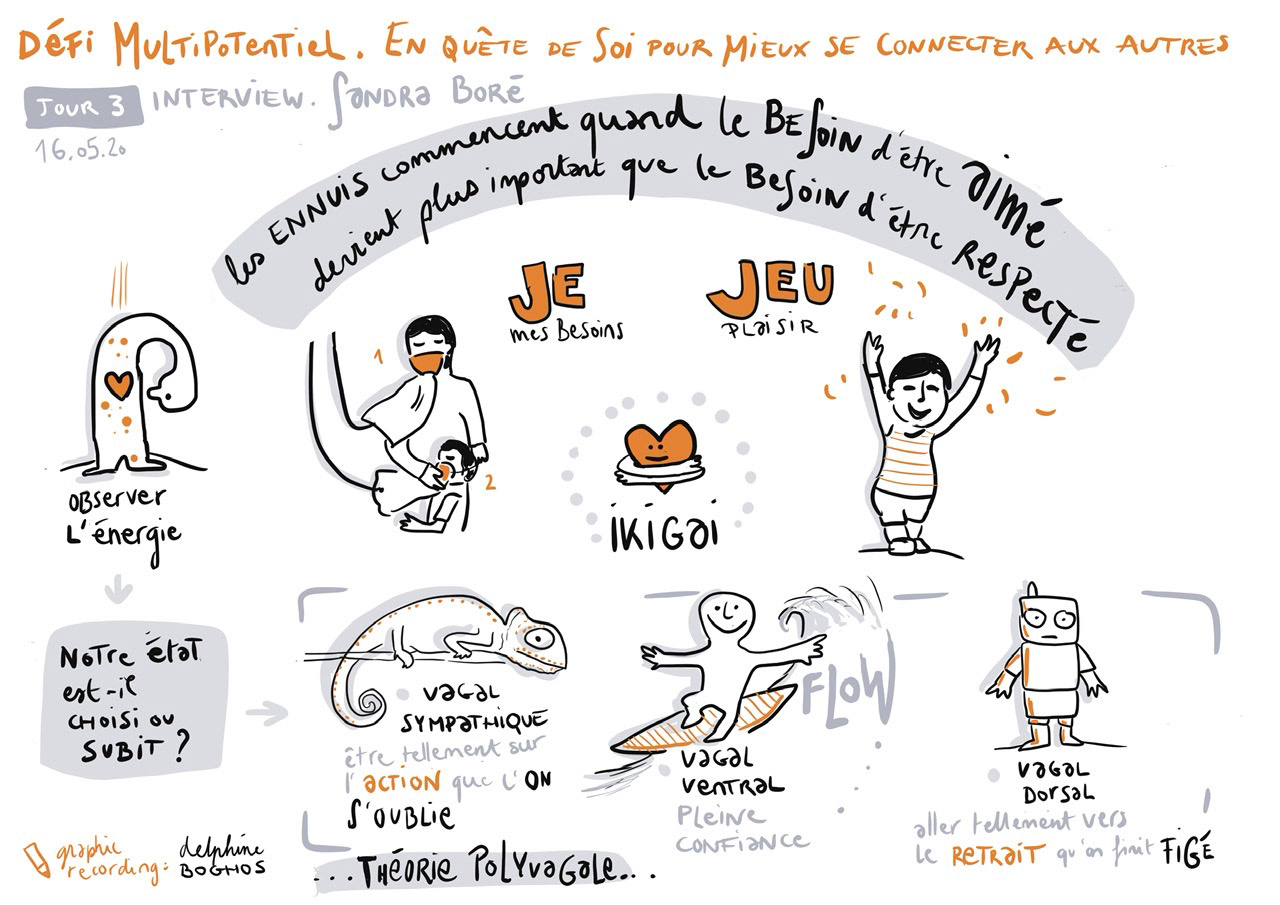 Défi Multipotentiel. En quête de soi pour mieux se connecter aux autres
Jour 3 INTERVIEW. Sandra Boré
16.05.20
les ENNUIS commencent quand le BESOIN d'être aimé
devient plus important que le BESOIN d'être RESPECTÉ
JE
mes Besoins
JEU
PLAISIR
1
2
OBserver
L'énergie
iKiGai
Notre état
est-il
CHOISI OU
SUBIT ?
vagal
SYMPATHIQUE
être tellement sur
l'ACTION que l'ON
S'OUBLIE
FLOW
vagal
ventral
Pleine
confiance
vagal
Dorsal
aller tellement vers
le RETRAIT qu'on finit FiGÉ
...THÉORIE POLYVAGALE...
graphic
recording:
delphine
BOGHOS